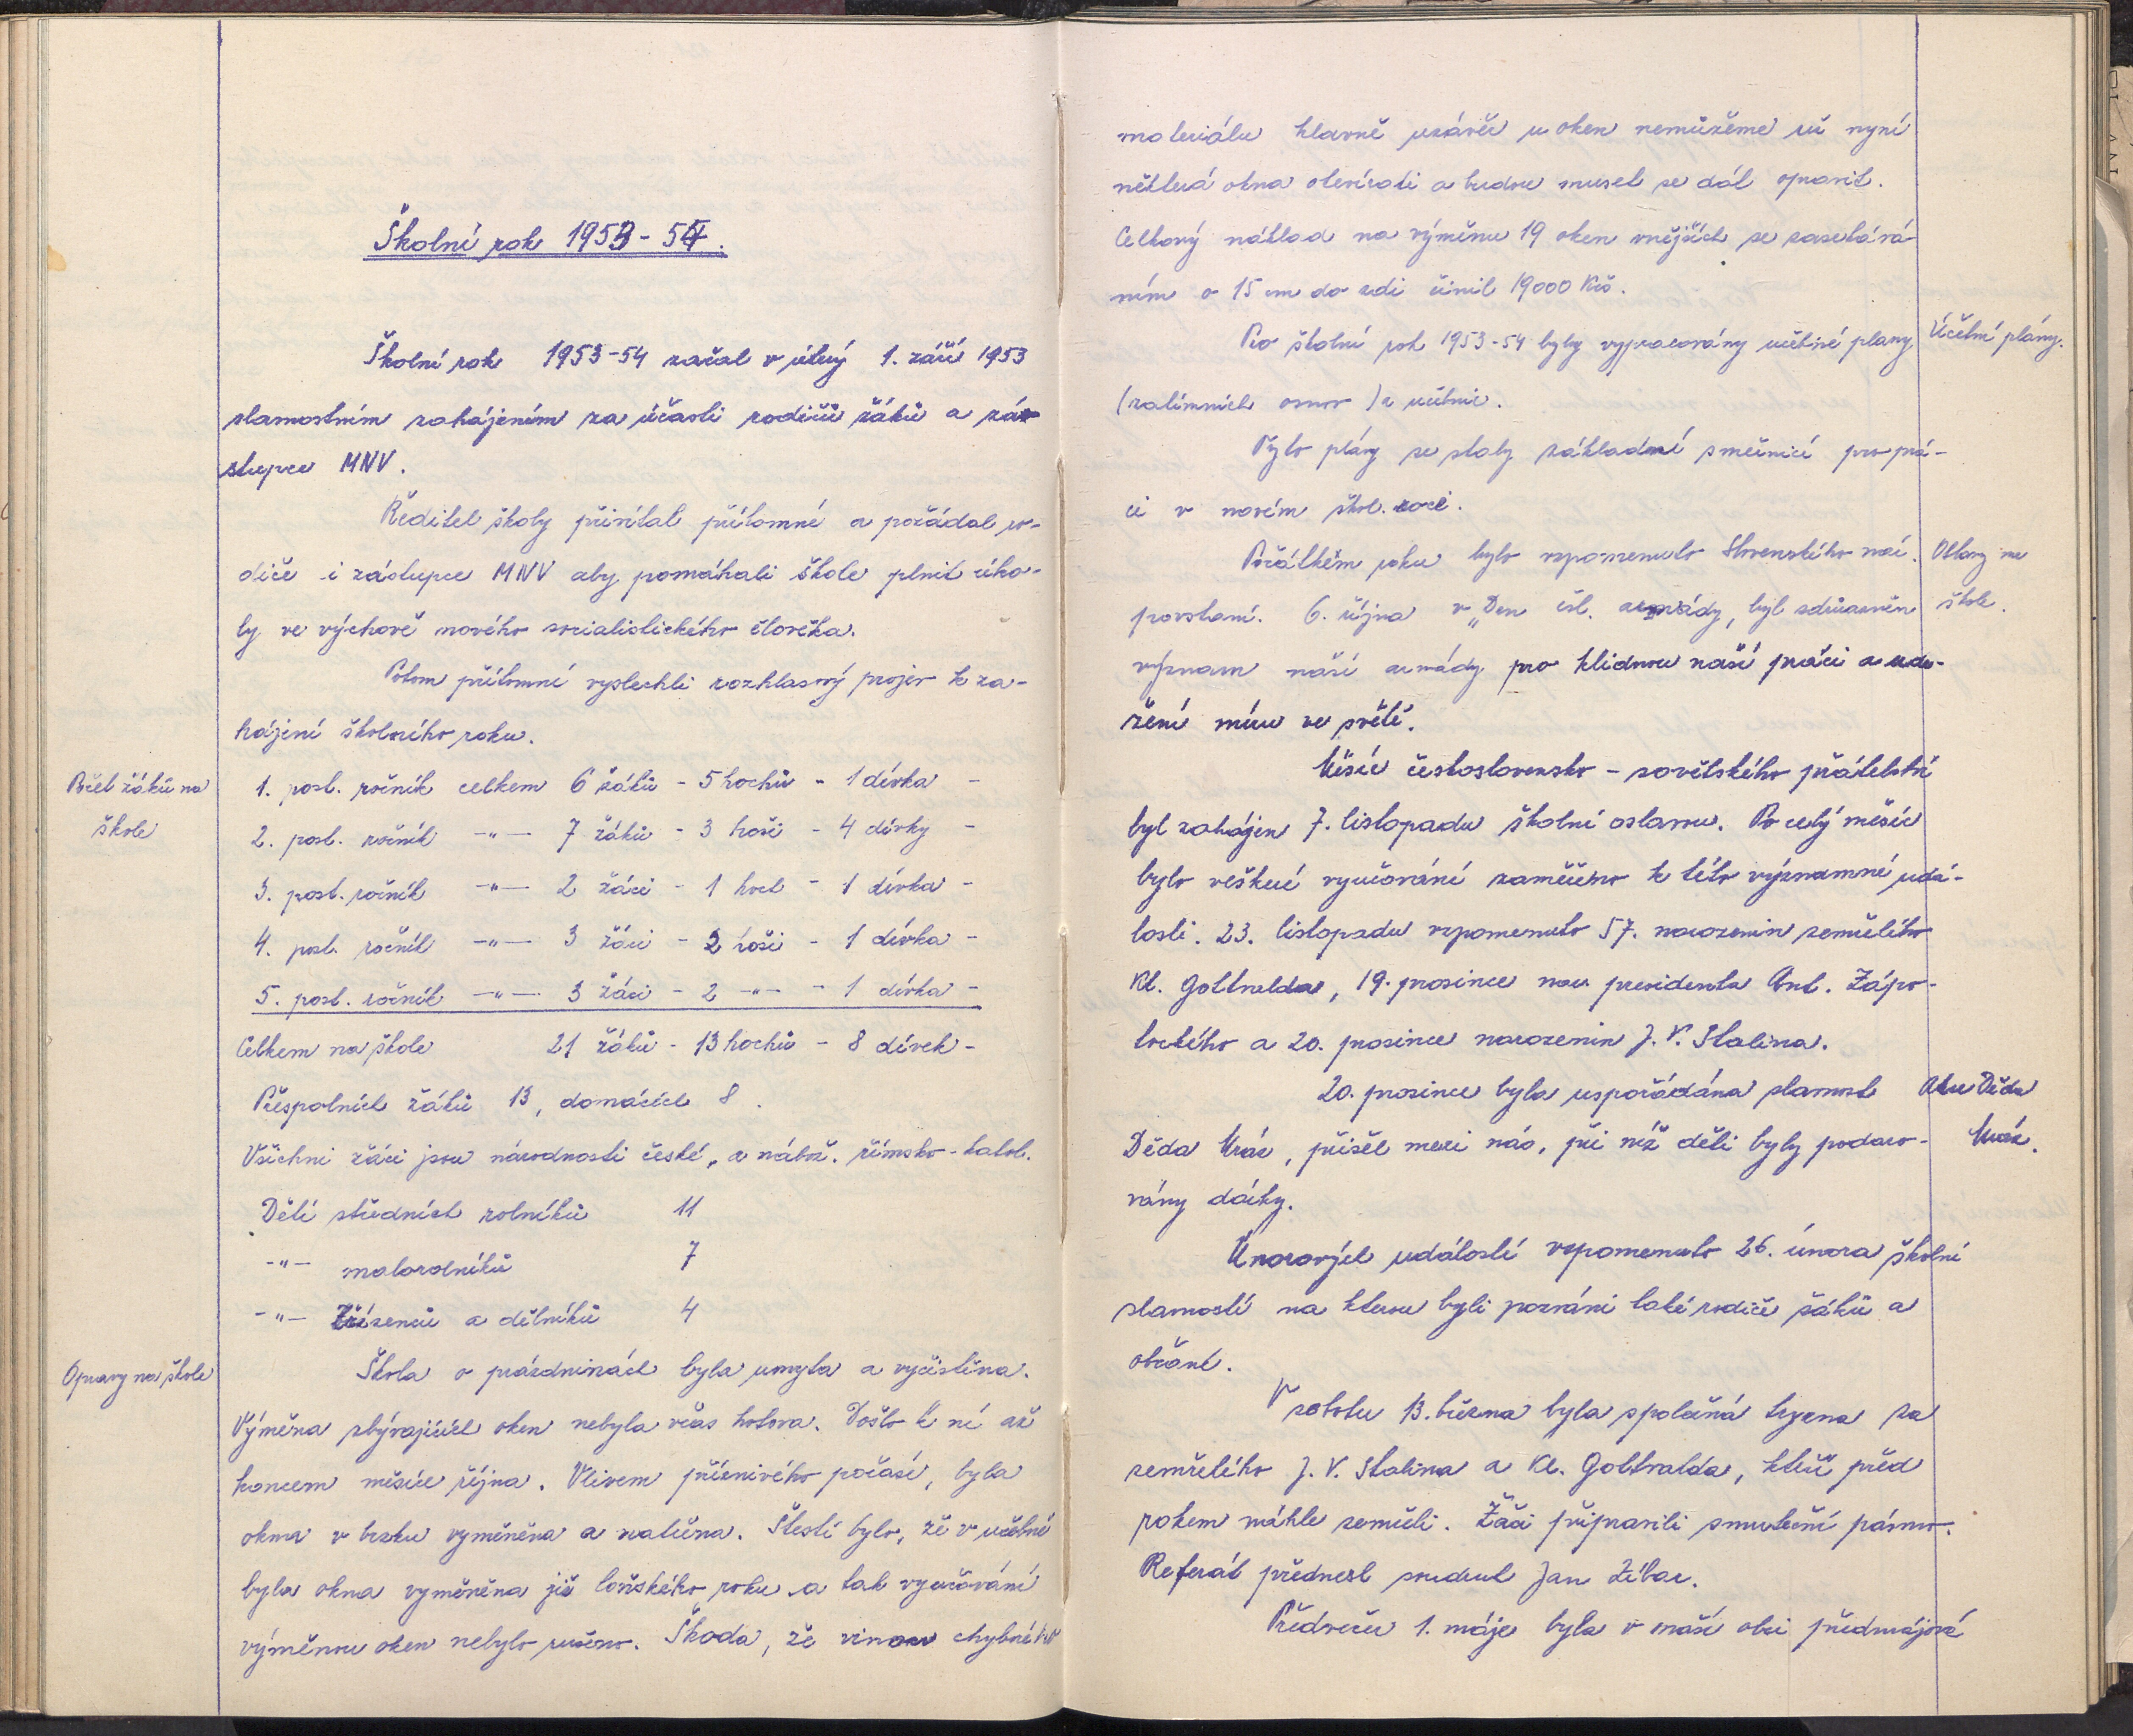 Školní rok 1953 - 54.
Školní rok 1953-54 začal v úterý 1. září 1953
slavnostním zahájením za účasti rodičů žáků a zá-
stupce MNV.
Ředitel školy přivítal přítomné a požádal ro-
diče i zástupce MNV aby pomáhali škole plnit úko-
ly ve výchově nového socialistického člověka.
Potom přítomní vyslechli rozhlasový projev k za-
hájení školního roku.
Počet žáků na
škole
1. post. ročník celkem 6 žáků - 5 hochů - 1 dívka -
2. post. ročník -"- 7 žáků - 3 hoši - 4 dívky -
3. post. ročník -"- 2 žáci - 1 hoch - 1 dívka -
4. post. ročník -"- 3 žáci - 2 hoši - 1 dívka -
5. post. ročník -"- 3 žáci - 2 -"- - 1 dívka -
Celkem na škole 21 žáků - 13 hochů - 8 dívek -
Přespolních žáků 13, domácích 8.
Všichni žáci jsou národnosti české, a nábož. římsko-katol.
Dětí středních rolníků 11
-"- malorolníků 7
-"- Zřízenců a dělníků 4
Opravy na škole
Škola o prázdninách byla umyta a vyčistěna.
Výměna zbývajících oken nebyla včas hotova. Došlo k ní až
koncem měsíce října. Vlivem příznivého počasí, byla
okna v brzku vyměněna a natřena. Štestí bylo, že v učebně
byla okna vyměněna již loňského roku a tak vyučování
výměnou oken nebylo rušeno. Škoda, že vinou chybného
materiálu hlavně uzávěr u oken nemůžeme už nyní
některá okna otevírati a budou muset se dát opravit.
Celkový náklad na výměnu 19 oken vnějších se zasekává-
ním o 15 cm do zdi činil 19000 Kčs.
Pro školní rok 1953-54 byly vypracovány učebné plany
Účební plány.
(zatímních osnov) a učebnic.
Tyto plány se staly základní směrnicí pro prá-
ci v novém škol. roce.
Počátkem roku bylo vzpomenuto Slovenského nár.
Oslavy na
škole.
povstaní. 6. října v „Den čsl. armády, byl zdůrazněn
význam naší armády pro klidnou naší práci a udr-
žení míru ve světě.
Měsíc československo - sovětského přátelství
byl zahájen 7. listopadu školní oslavou. Po celý měsíc
bylo veškeré vyučování zaměřeno k této významné udá-
losti. 23. listopadu vzpomenuto 57. narozenin zemřelého
Kl. Gottwalda, 19. prosince nar. presidenta Ant. Zápo-
tockého a 20. prosince narozenin J. V. Stalina.
20. prosince byla uspořádána slavnost
Akce Děda
Mráz.
Děda Mráz, přišel mezi nás, při níž děti byly podaro-
vány dárky.
Únorových událostí vzpomenuto 26. února školní
slavností na kterou byli pozváni také rodiče žáků a
občané.
V sobotu 13. března byla společná tryzna za
zemřelého J. V. Stalina a Kl. Gottwalda, kteří před
rokem náhle zemřeli. Žáci připravili smuteční pásmo.
Referát přednesl soudruh Jan
Předvečer 1. máje byla v naší obci předmájová